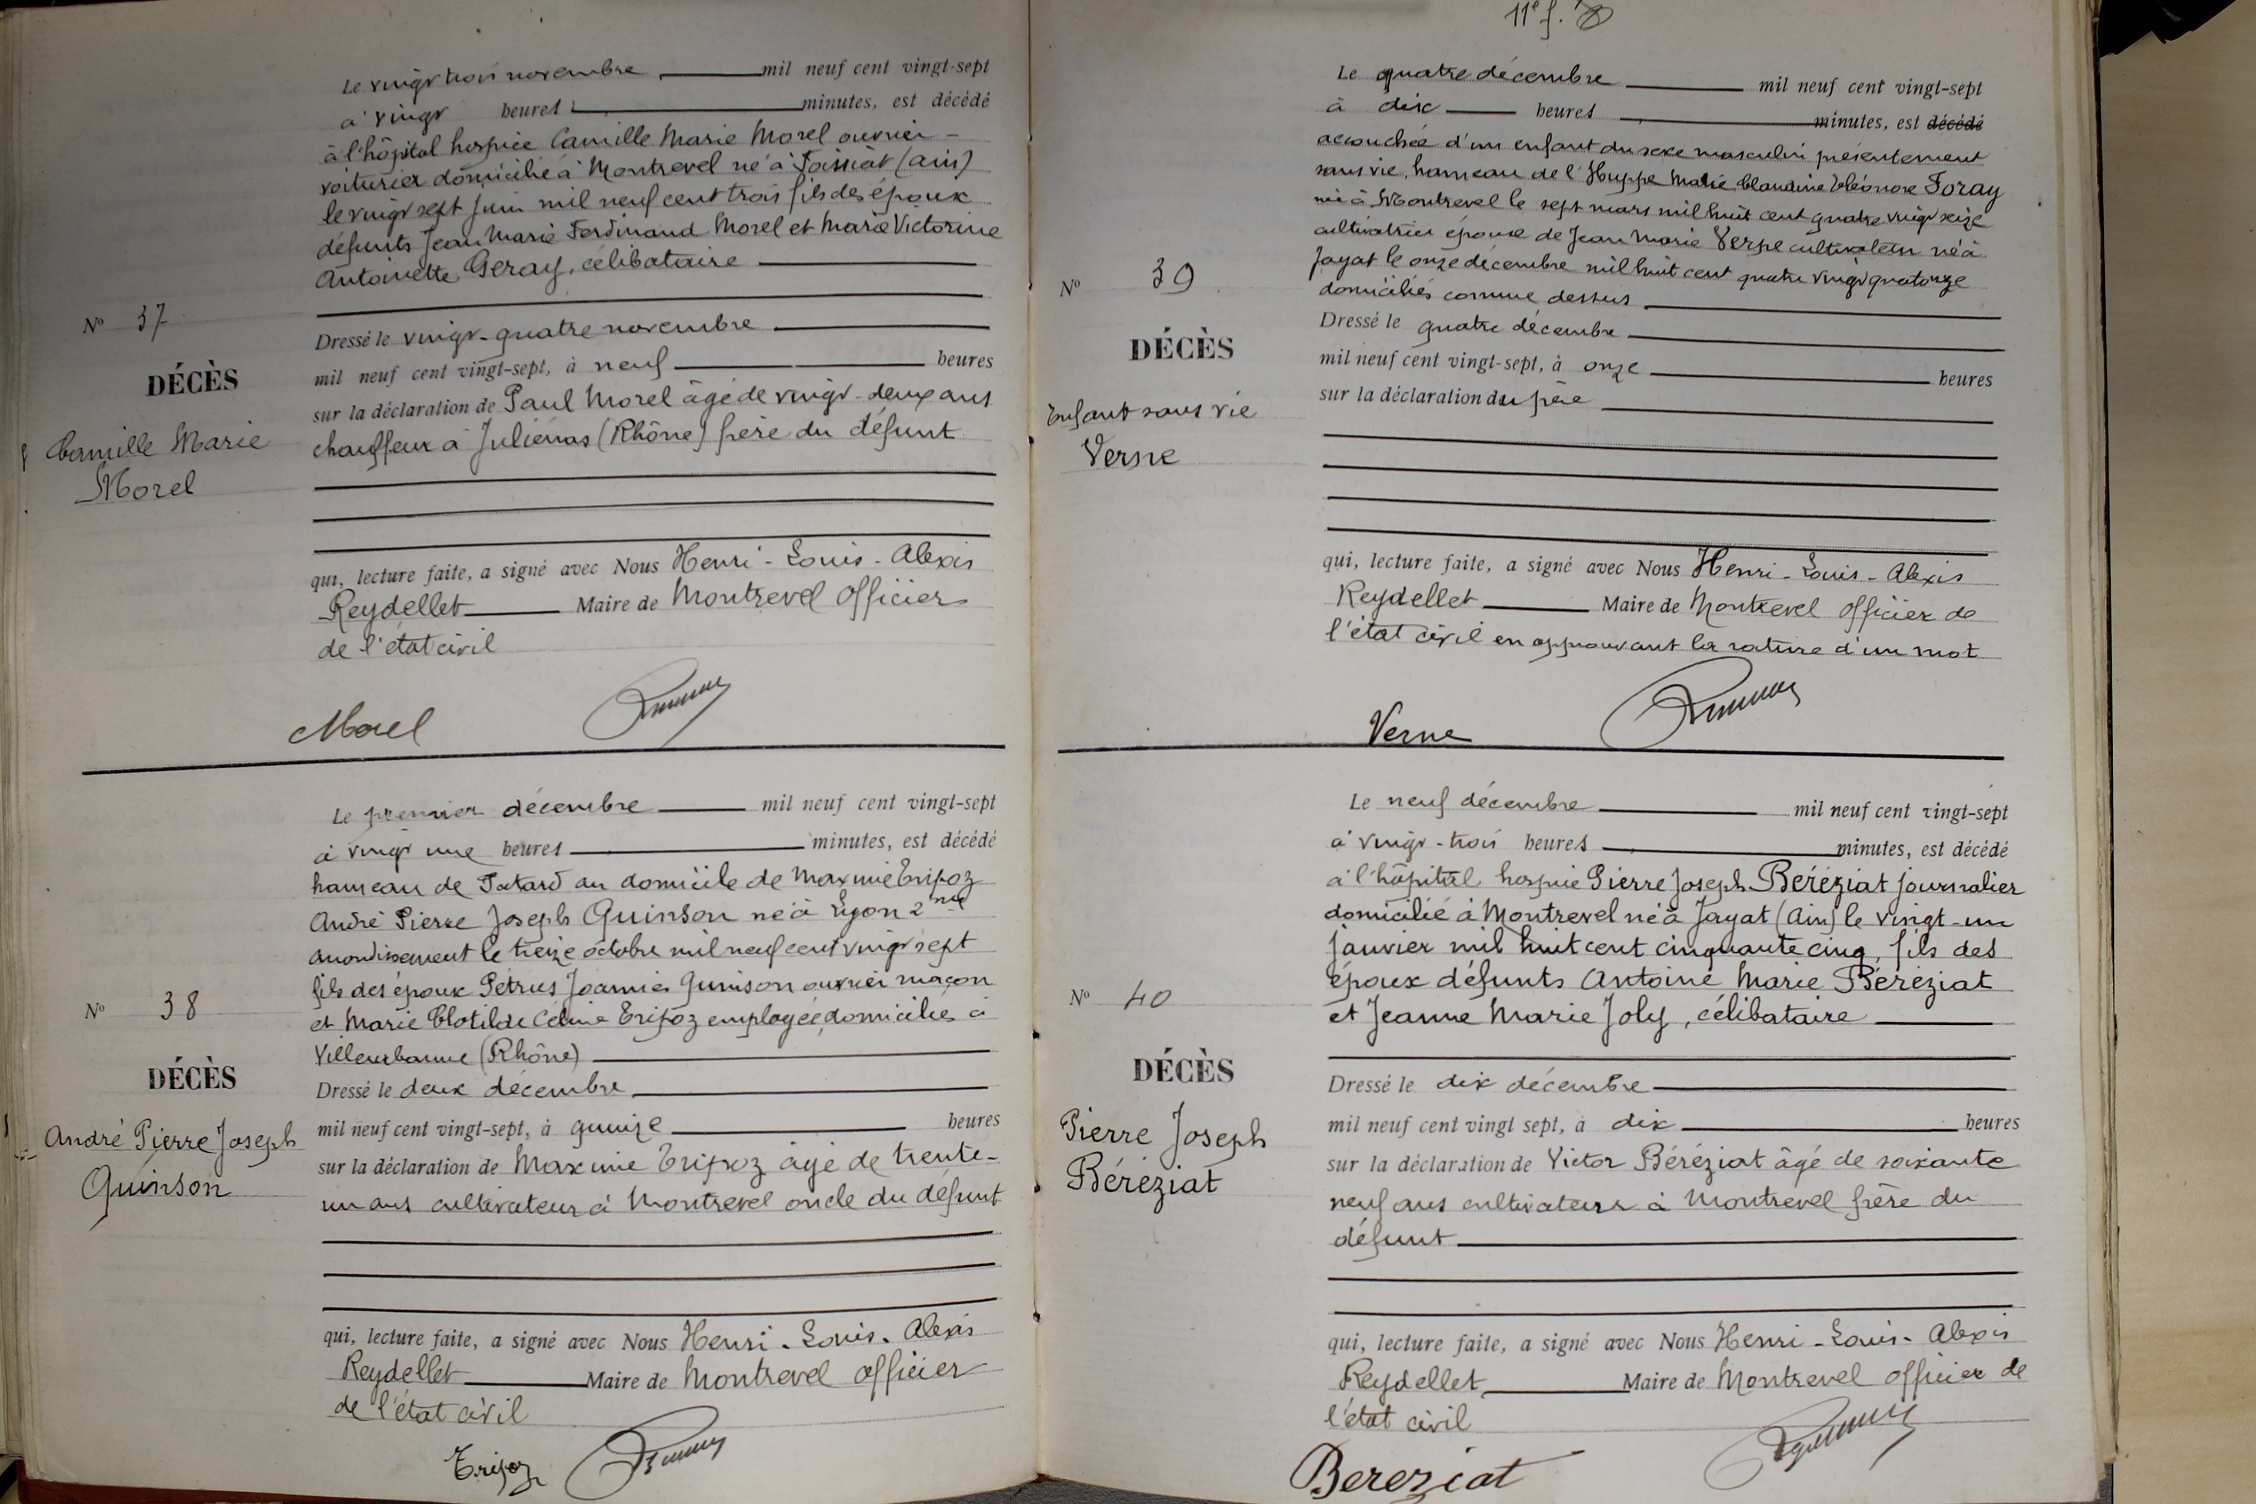 Le vingt trois novembre mil neuf cent vingt-sept
à vingt heures minutes, est décédé
à l'hôpital hospice Camille Marie Morel ouvrier
voiturier domicilié à Montrevel né à Foissiat (Ain)
le vingt sept juin mil neuf cent trois fils des époux
défunts Jean Marie Ferdinand Morel et Marie Victorine
Antoinette Geray, célibataire
Nº 37
DÉCÈS
Camille Marie
Morel
Dressé le vingt-quatre novembre
mil neuf cent vingt-sept, à neuf heures
sur la déclaration de Paul Morel âgé de vingt-deux ans
chauffeur à Juliénas (Rhône) frère du défunt
qui, lecture faite, a signé avec Nous Henri-Louis-Alexis
Reydellet Maire de Montrevel Officier
de l'état civil
Morel
Le premier décembre mil neuf cent vingt-sept
à vingt une heures minutes, est décédé
hameau de au domicile de Maxime Tripoz
André Pierre Joseph Quinson né à Lyon 2me
arrondissement le treize octobre mil neuf cent vingt sept
fils des époux Pétrus Joannès Quinson ouvrier maçon
et Marie Clotilde Céline Tripoz employée, domiciliés à
Villeurbanne (Rhône)
Nº 38
DÉCÈS
André Pierre Joseph
Quinson
Dressé le deux décembre
mil neuf cent vingt-sept, à quinze heures
sur la déclaration de Maxime Tripoz âgé de trente-
un ans cultivateur à Montrevel oncle du défunt
qui, lecture faite, a signé avec Nous Henri-Louis-Alexis
Reydellet Maire de Montrevel Officier
de l'état civil
Tripoz
11e f.
Le quatre décembre mil neuf cent vingt-sept
à dix heures minutes, est décédé
accouchée d'un enfant du sexe masculin présentement
sans vie, hameau de l'Huppe Marie Claudine Eléonore Foray
née à Montrevel le sept mars mil huit cent quatre vingt seize
cultivatrice épouse de Jean Marie Verne cultivateur né à
Jayat le onze décembre mil huit cent quatre vingt quatorze
domiciliés comme dessus
Nº 39
DÉCÈS
Enfant sans vie
Verne
Dressé le quatre décembre
mil neuf cent vingt-sept, à onze heures
sur la déclaration du père
qui, lecture faite, a signé avec Nous Henri-Louis-Alexis
Reydellet Maire de Montrevel Officier de
l'état civil en approuvant la rature d'un mot
Verne
Le neuf décembre mil neuf cent vingt-sept
à vingt-trois heures minutes, est décédé
à l'hôpital hospice Pierre Joseph Béréziat journalier
domicilié à Montrevel né à Jayat (Ain) le vingt-un
janvier mil huit cent cinquante cinq, fils des
époux défunts Antoine Marie Béréziat
et Jeanne Marie Joly, célibataire
Nº 40
DÉCÈS
Pierre Joseph
Béréziat
Dressé le dix décembre
mil neuf cent vingt sept, à dix heures
sur la déclaration de Victor Béréziat âgé de soixante
neuf ans cultivateur à Montrevel frère du
défunt
qui, lecture faite, a signé avec Nous Henri-Louis-Alexis
Reydellet Maire de Montrevel Officier de
l'état civil
Bereziat